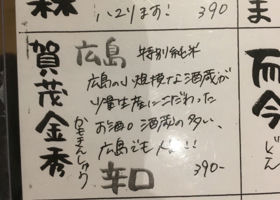 森
ハマります! 390
ま
賀茂金秀
かもきんしゅう
広島 特別純米
広島の小規模な酒蔵が
少量生産にこだわった
お酒。酒蔵の多い、
広島でも人気!!
辛口
390-
而今